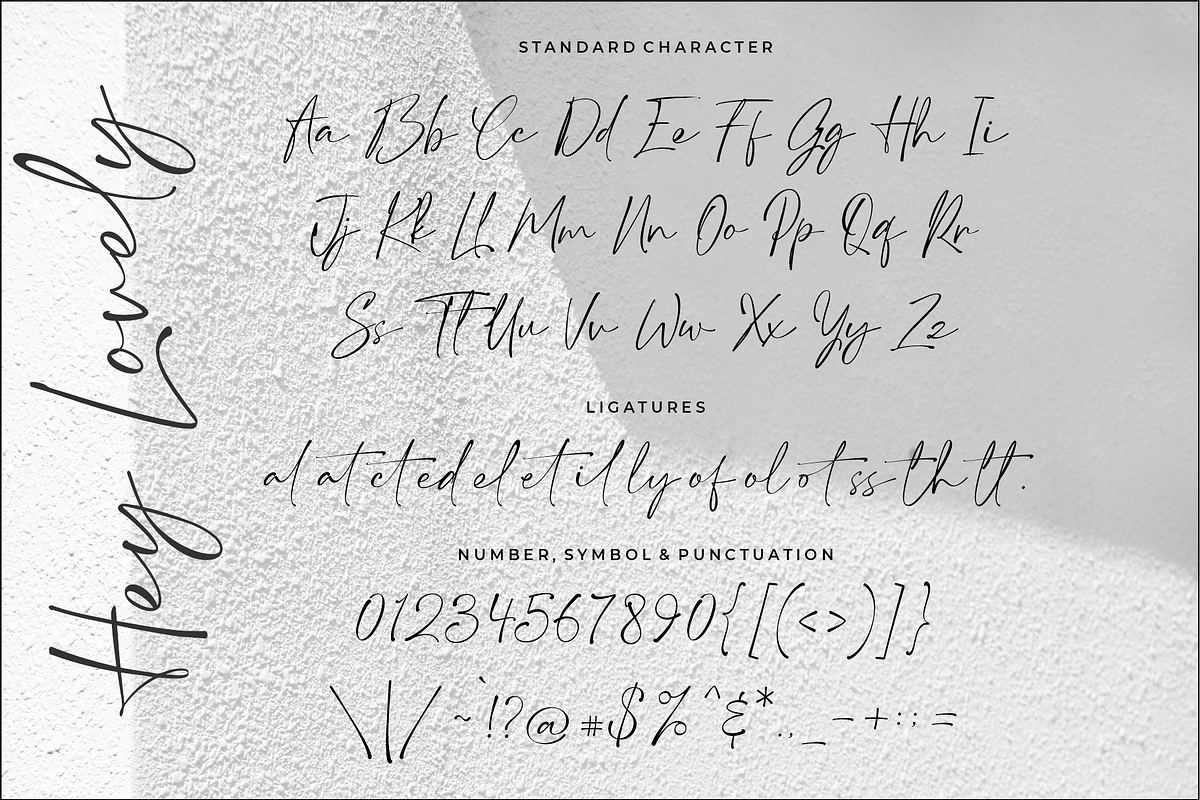 Hey Lovely
STANDARD CHARACTER
Aa Bb Cc Dd Ee Ff Gg Hh Ii
Jj Kk Ll Mm Nn Oo Pp Qq Rr
Ss Tt Uu Vv Ww Xx Yy Zz
LIGATURES
al at ct ed el et il ly of ol ot ss th tt .
NUMBER, SYMBOL & PUNCTUATION
01234567890{[(<>)]}
\|/ ~`!?@#$%^&*.,_-+:;=